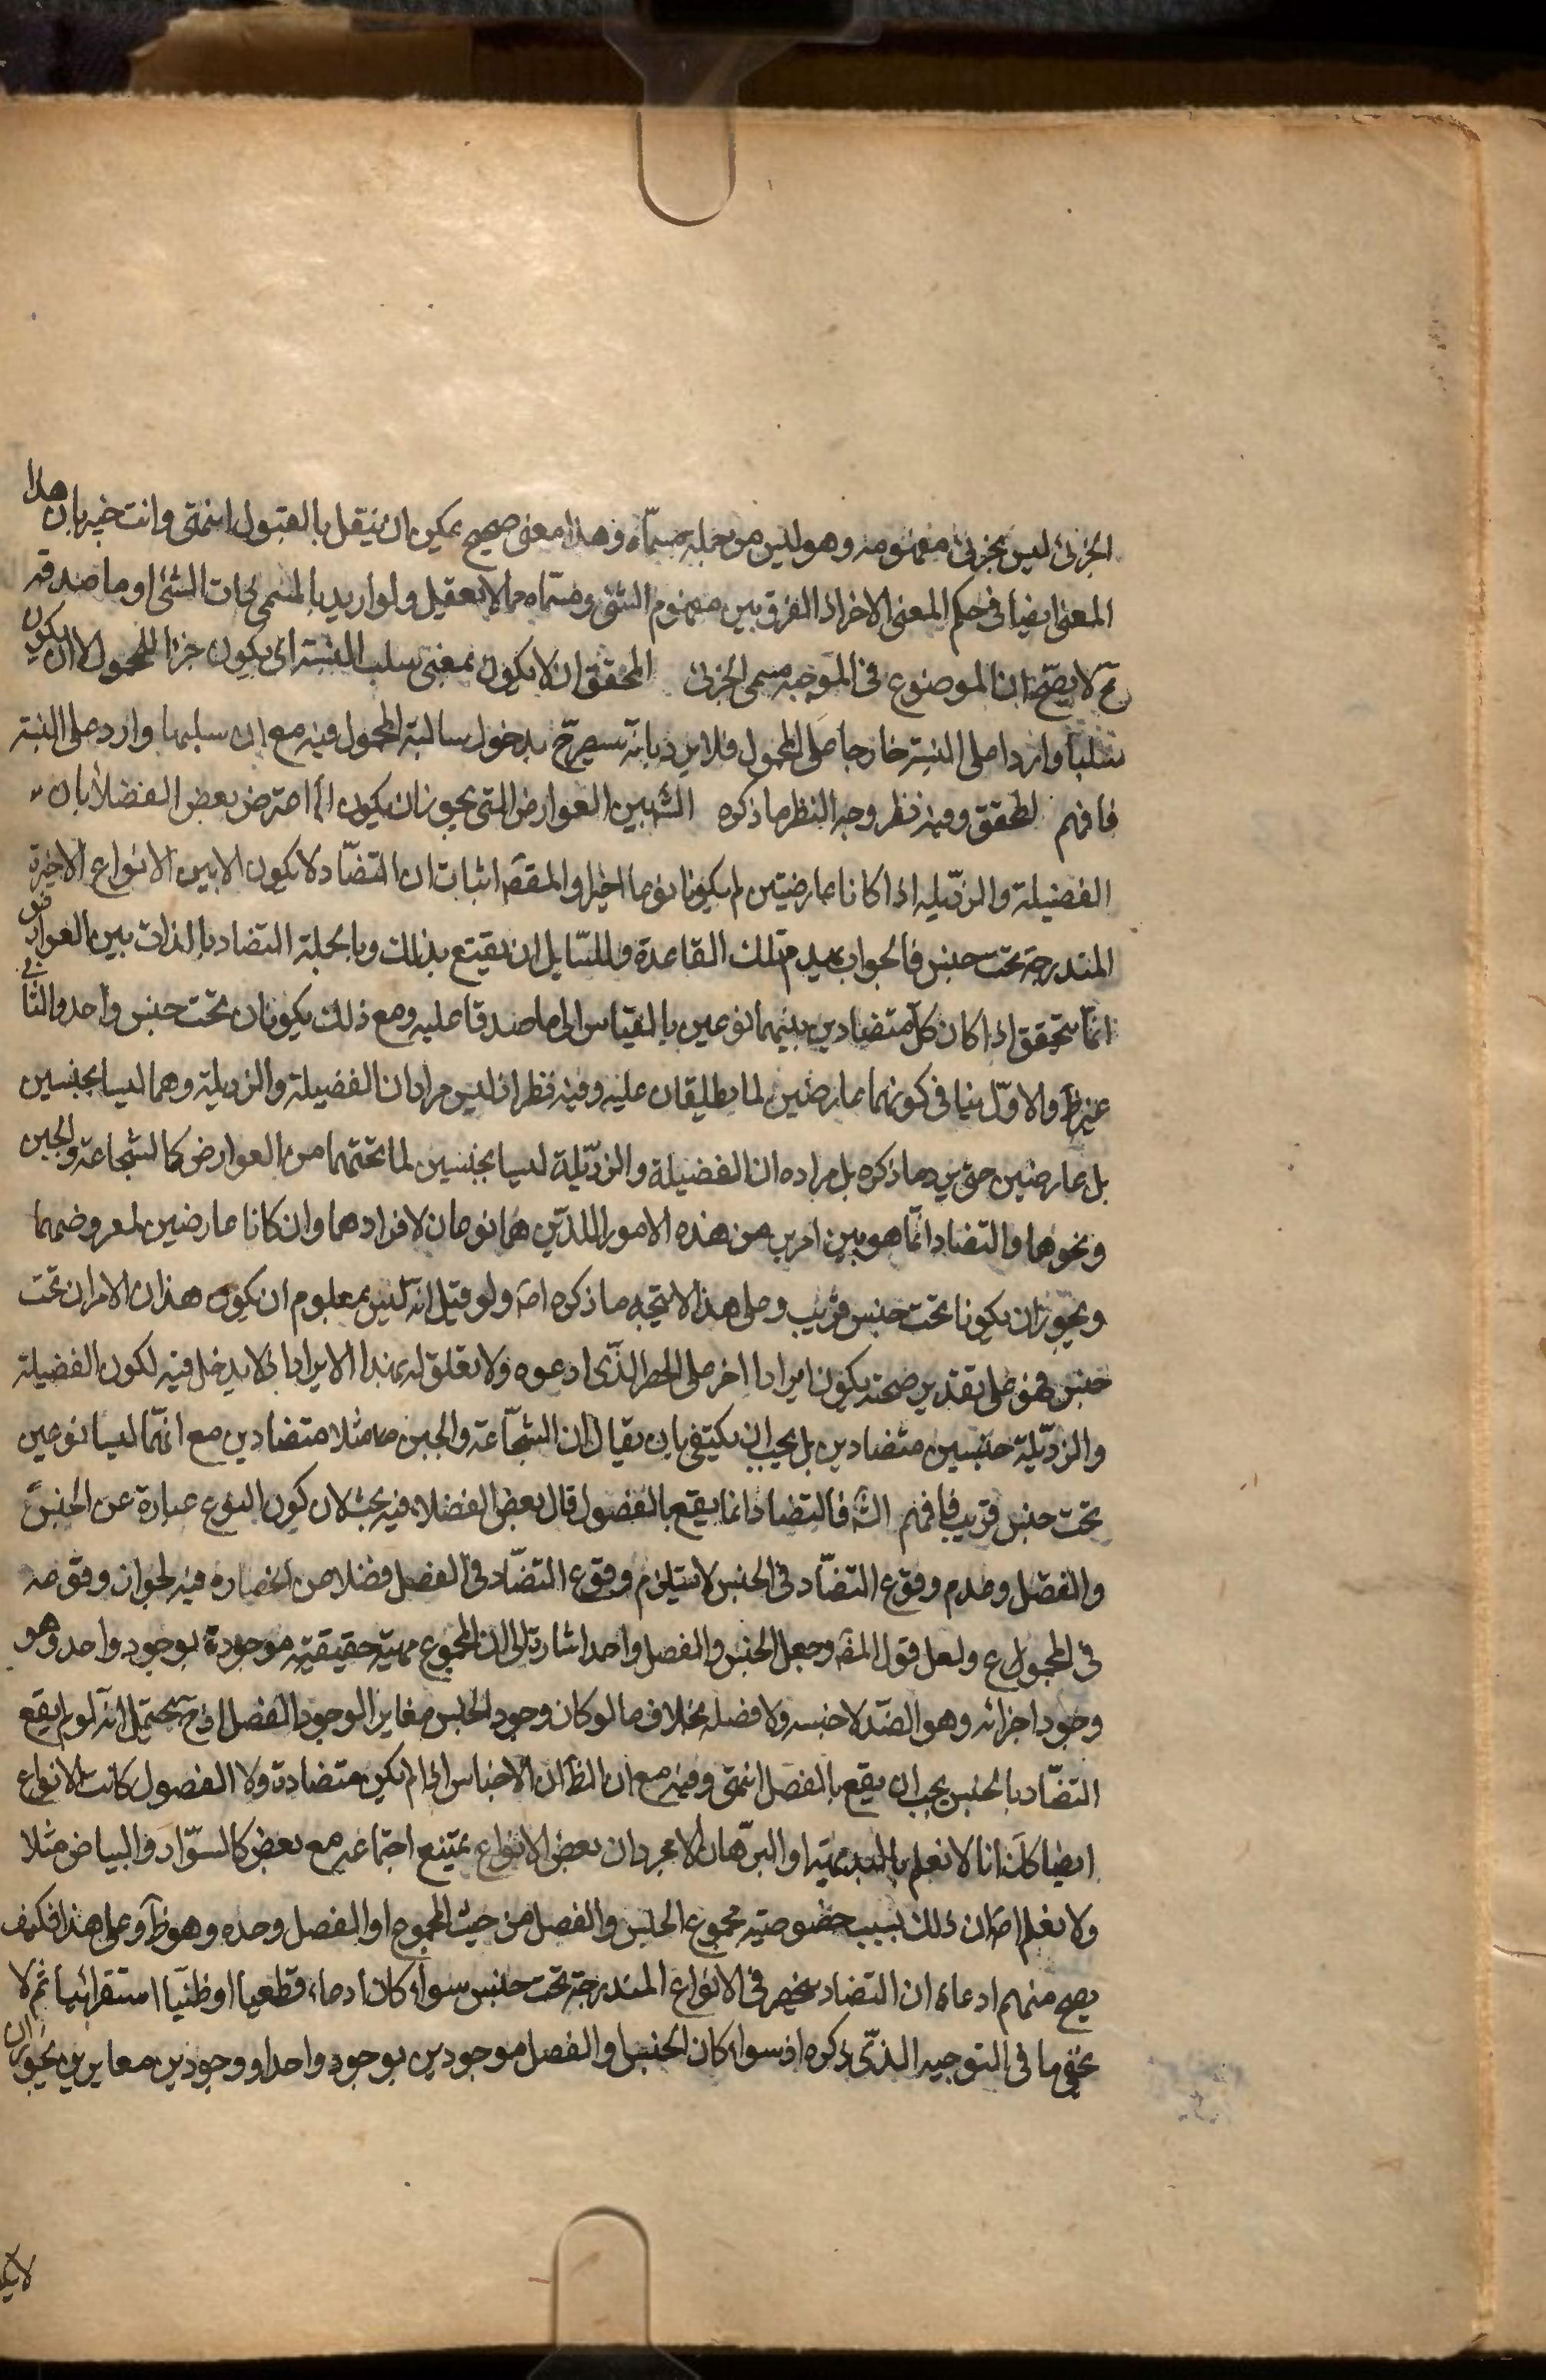 الجزئى ليس بجزئى مفهومه وهو ليس من جملة مسمّاه وهذا معنى صحيح يمكن ان ينقل بالقبول انتهى وانت خبير بان هذا
المعنى ايضا فى حكم المعنى الاخر اذ الفرق بين مفهوم الشئ ومسمّاه مما لا يعقل ولو اريد بالمسمى ذات الشئ او ما صدقه
ح لا يصحّ ان الموضوع فى الموجبه مسمى الجزئى المحقق ان لا يكون بمعنى سلب النسبة اى يكون جزءا للمحمول لا ان يكون
سلبا واردا على النسبة خارجا على المحمول فلا يرد بانه سيصرّح بدخول سالبة المحمول فيه مع ان سلبها وارد على النسبة
فافهم لمحقق وفيه نظر وجه النظر ما ذكره الش بين العوارض التى يجوز ان يكون الما اعترض بعض الفضلا بان
الفضيلة والرذيله اذا كانا عارضيتين لم يكونا نوعا اخيرا والمقصّ اثبات ان التضّاد لا يكون الا بين الانواع الاخيرة
المندرجة تحت جنس فالجواب يهدم تلك القاعدة وللسّايل ان يقنع بذلك وبالجملة التضاد بالذات بين العوارض
انمّا يتحقق اذا كان كلّ متضادين بينهما نوعين بالقياس الى ما صدقا عليه ومع ذلك يكونان تحت جنس واحد والثانى
غير ظ والاوّل ينافى كونهما عارضين لما يطلقان عليه وفيه نظر اذ ليس مراد ان الفضيلة والرذيلة وهما ليسا بجنسين
بل عارضين حتى يرد ما ذكره بل مراده ان الفضيلة والرذيّلة ليسا بجنسين لما تحتهما من العوارض كالشجاعة والجبن
ونحوهما والتضاد انمّا هو بين امرين من هذه الامور اللذين هما نوعان لافرادهما وان كانا عارضين لمعروضهما
ويجوز ان يكونا تحت جنس قريب وعلى هذا لا يتجه ما ذكره اصَ ولو قيل انه ليس بمعلوم ان يكون هذان الامران تحت
جنس فهو على تقدير صحته يكون ايرادا اخر على الحصر الذّى ادعوه ولا تعلق له بهذا الايراد اذ لا يدخل فيه لكون الفضيلة
والرذيّلة جنسين متضادين بل يجب ان يكتفى بان يقال ان الشجاعة والجبن مثلا متضادين مع انهّما ليسا نوعين
تحت جنس قريب فافهم الش فالتضاد انما يقع بالفصول قال بعض الفضلاء فيه بحث لان كون النوع عبارة عن الجنس
والفصل وعدم وقوع التضّاد فى الجنس لا يستلزم وقوع التضّاد فى الفصل فضلا عن انحصاره فيه لجواز وقوعه
فى المجموع ولعل قول المصَ وجعل الجنس والفصل واحد اشارة الى ان المجموع مهية حقيقية موجودة بوجود واحد وهو
وجود اجزائه وهو الضّد لا جنسه ولا فصله بخلاف ما لو كان وجود الجنس مغايرا لوجود الفصل اذ ح يحتمل انه لو لم يقع
التضّاد بالجنس يجب ان يقع بالفصل انتهى وفيه مع ان الظ ان الاجناس اذا لم يكن متضادة ولا الفصول كانت الانواع
ايضا كك انا لا نعلم بالبديهة او البرّهان الا مجرد ان بعض الانواع يمتنع اجتماعه مع بعض كالسوّاد والبياض مثلا
ولا نعلم اصَ ان ذلك بسبب خصوصية مجموع الجنس والفصل من حيث المجموع او الفصل وحده وهو ظ وعلى هذا فكيف
يصح منهم ادعاء ان التضاد منحصر فى الانواع المندرجة تحت جنس سواء كان ادعاء قطعيا او ظنيّا استقرائيا ثم لا
يخفى ما فى التوجيه الذّى ذكره اذ سواء كان الجنس والفصل موجودين بوجود واحد او وجودين مغايرين يجوز ان